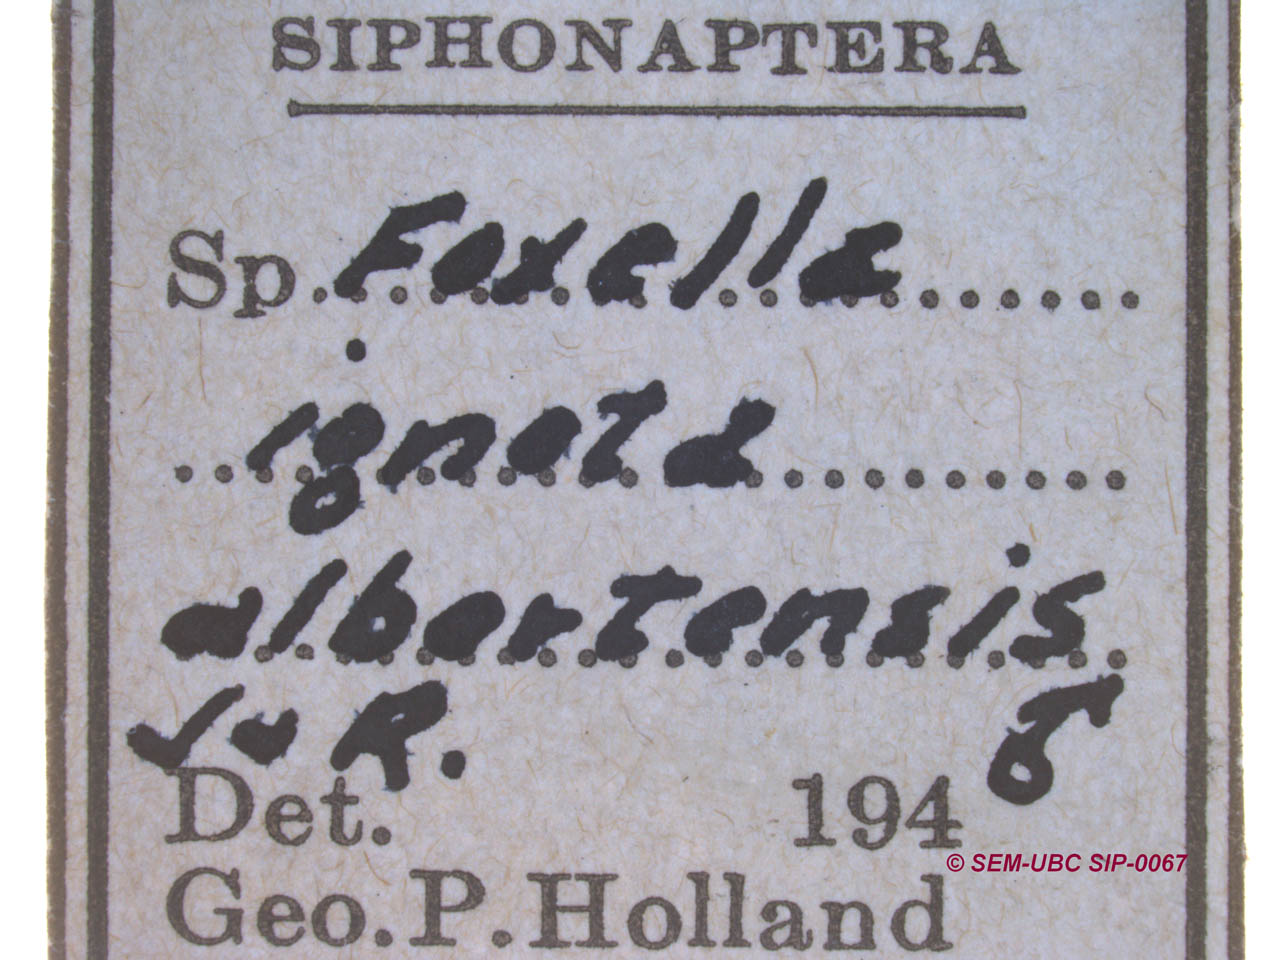 SIPHONAPTERA
Sp. Foxella
ignota
albertensis
J & R. ♂
Det. 194
© SEM-UBC SIP-0067
Geo. P. Holland